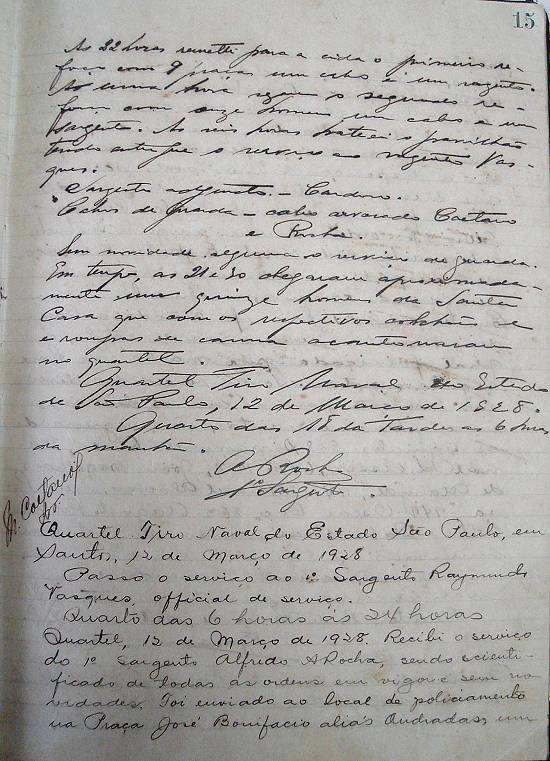 15
As 22 horas remetti para a cida o primeiro re-
forço com 9 praças um cabo e um sargento.
A uma hora segue o segundo re-
forço com onze homens um cabo e um
sargento. As seis horas o pavilhão
tendo entregue o serviço ao sargento Vas-
ques.
Sargento adjunto. - Cardoso.
Cabos de guarda - cabo arvorado Caetano
e Rocha.
Sem novidade alguma o serviço de guarda.
Em tempo, as 21 e 30 chegaram aproximada-
mente uns quinze homens da Santa
Casa que com os respectivos colchões
e roupas de cama acantonaram
no quartel.
Quartel Tiro Naval do Estado
de São Paulo, 12 de Março de 1928.
Quarto das 18 da Tarde as 6 horas
da manhã.
A Rocha
1º Sargento
Quartel Tiro Naval do Estado São Paulo, em
Santos, 12 de Março de 1928
Passo o serviço ao 1º Sargento Raymundo
Vasques, official de serviço.
Quarto das 6 horas ás 24 horas
Quartel, 12 de Março de 1928. Recibi o serviço
do 1º Sargento Alfredo A Rocha, sendo scienti-
ficado de todas as ordens em vigor e sem no
vidades. Foi enviado ao local de policiamento
na Praça José Bonifacio aliás Andradas, um